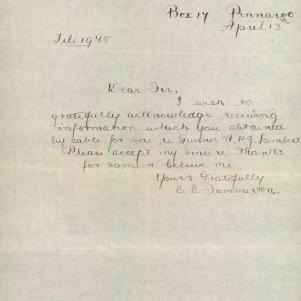 Box 17 Pinnaroo
April 13th
File 1948
Dear Sir,
I wish to
gratefully acknowledge receiving
information which you obtained
by cable for me re Gunner A.H.G. Lambert
Please accept my sincere thanks
for same & believe me
Yours Gratefully
C. C. Summerton.